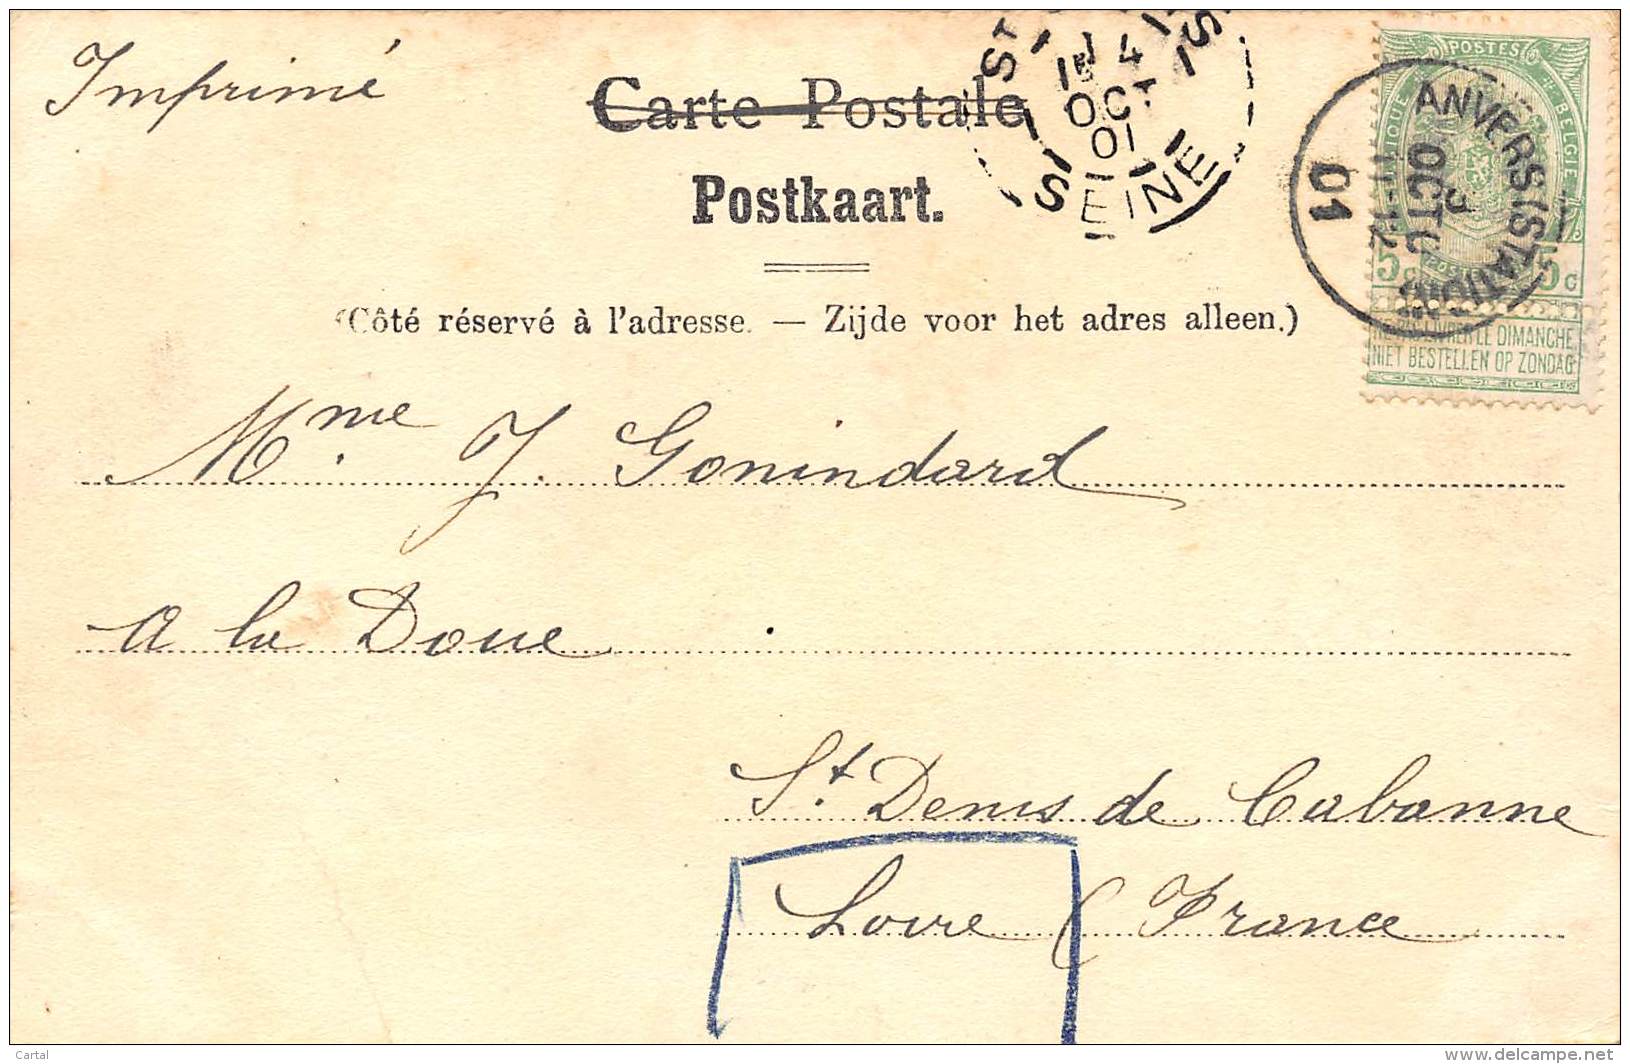 Imprimé
Carte Postale
Postkaart.
(Côté réservé à l'adresse. — Zijde voor het adres alleen.)
1E 4
OCT
01
SEINE
POSTES
BELGIE
ANVERS (STATION)
3
OCTO
11-12
01
5c 5c
NE PAS LIVRER LE DIMANCHE
NIET BESTELLEN OP ZONDAG
Mme. J. Gonindard
A la Doue
St. Denis de Cabanne
Loire (France
Cartal
www.delcampe.net